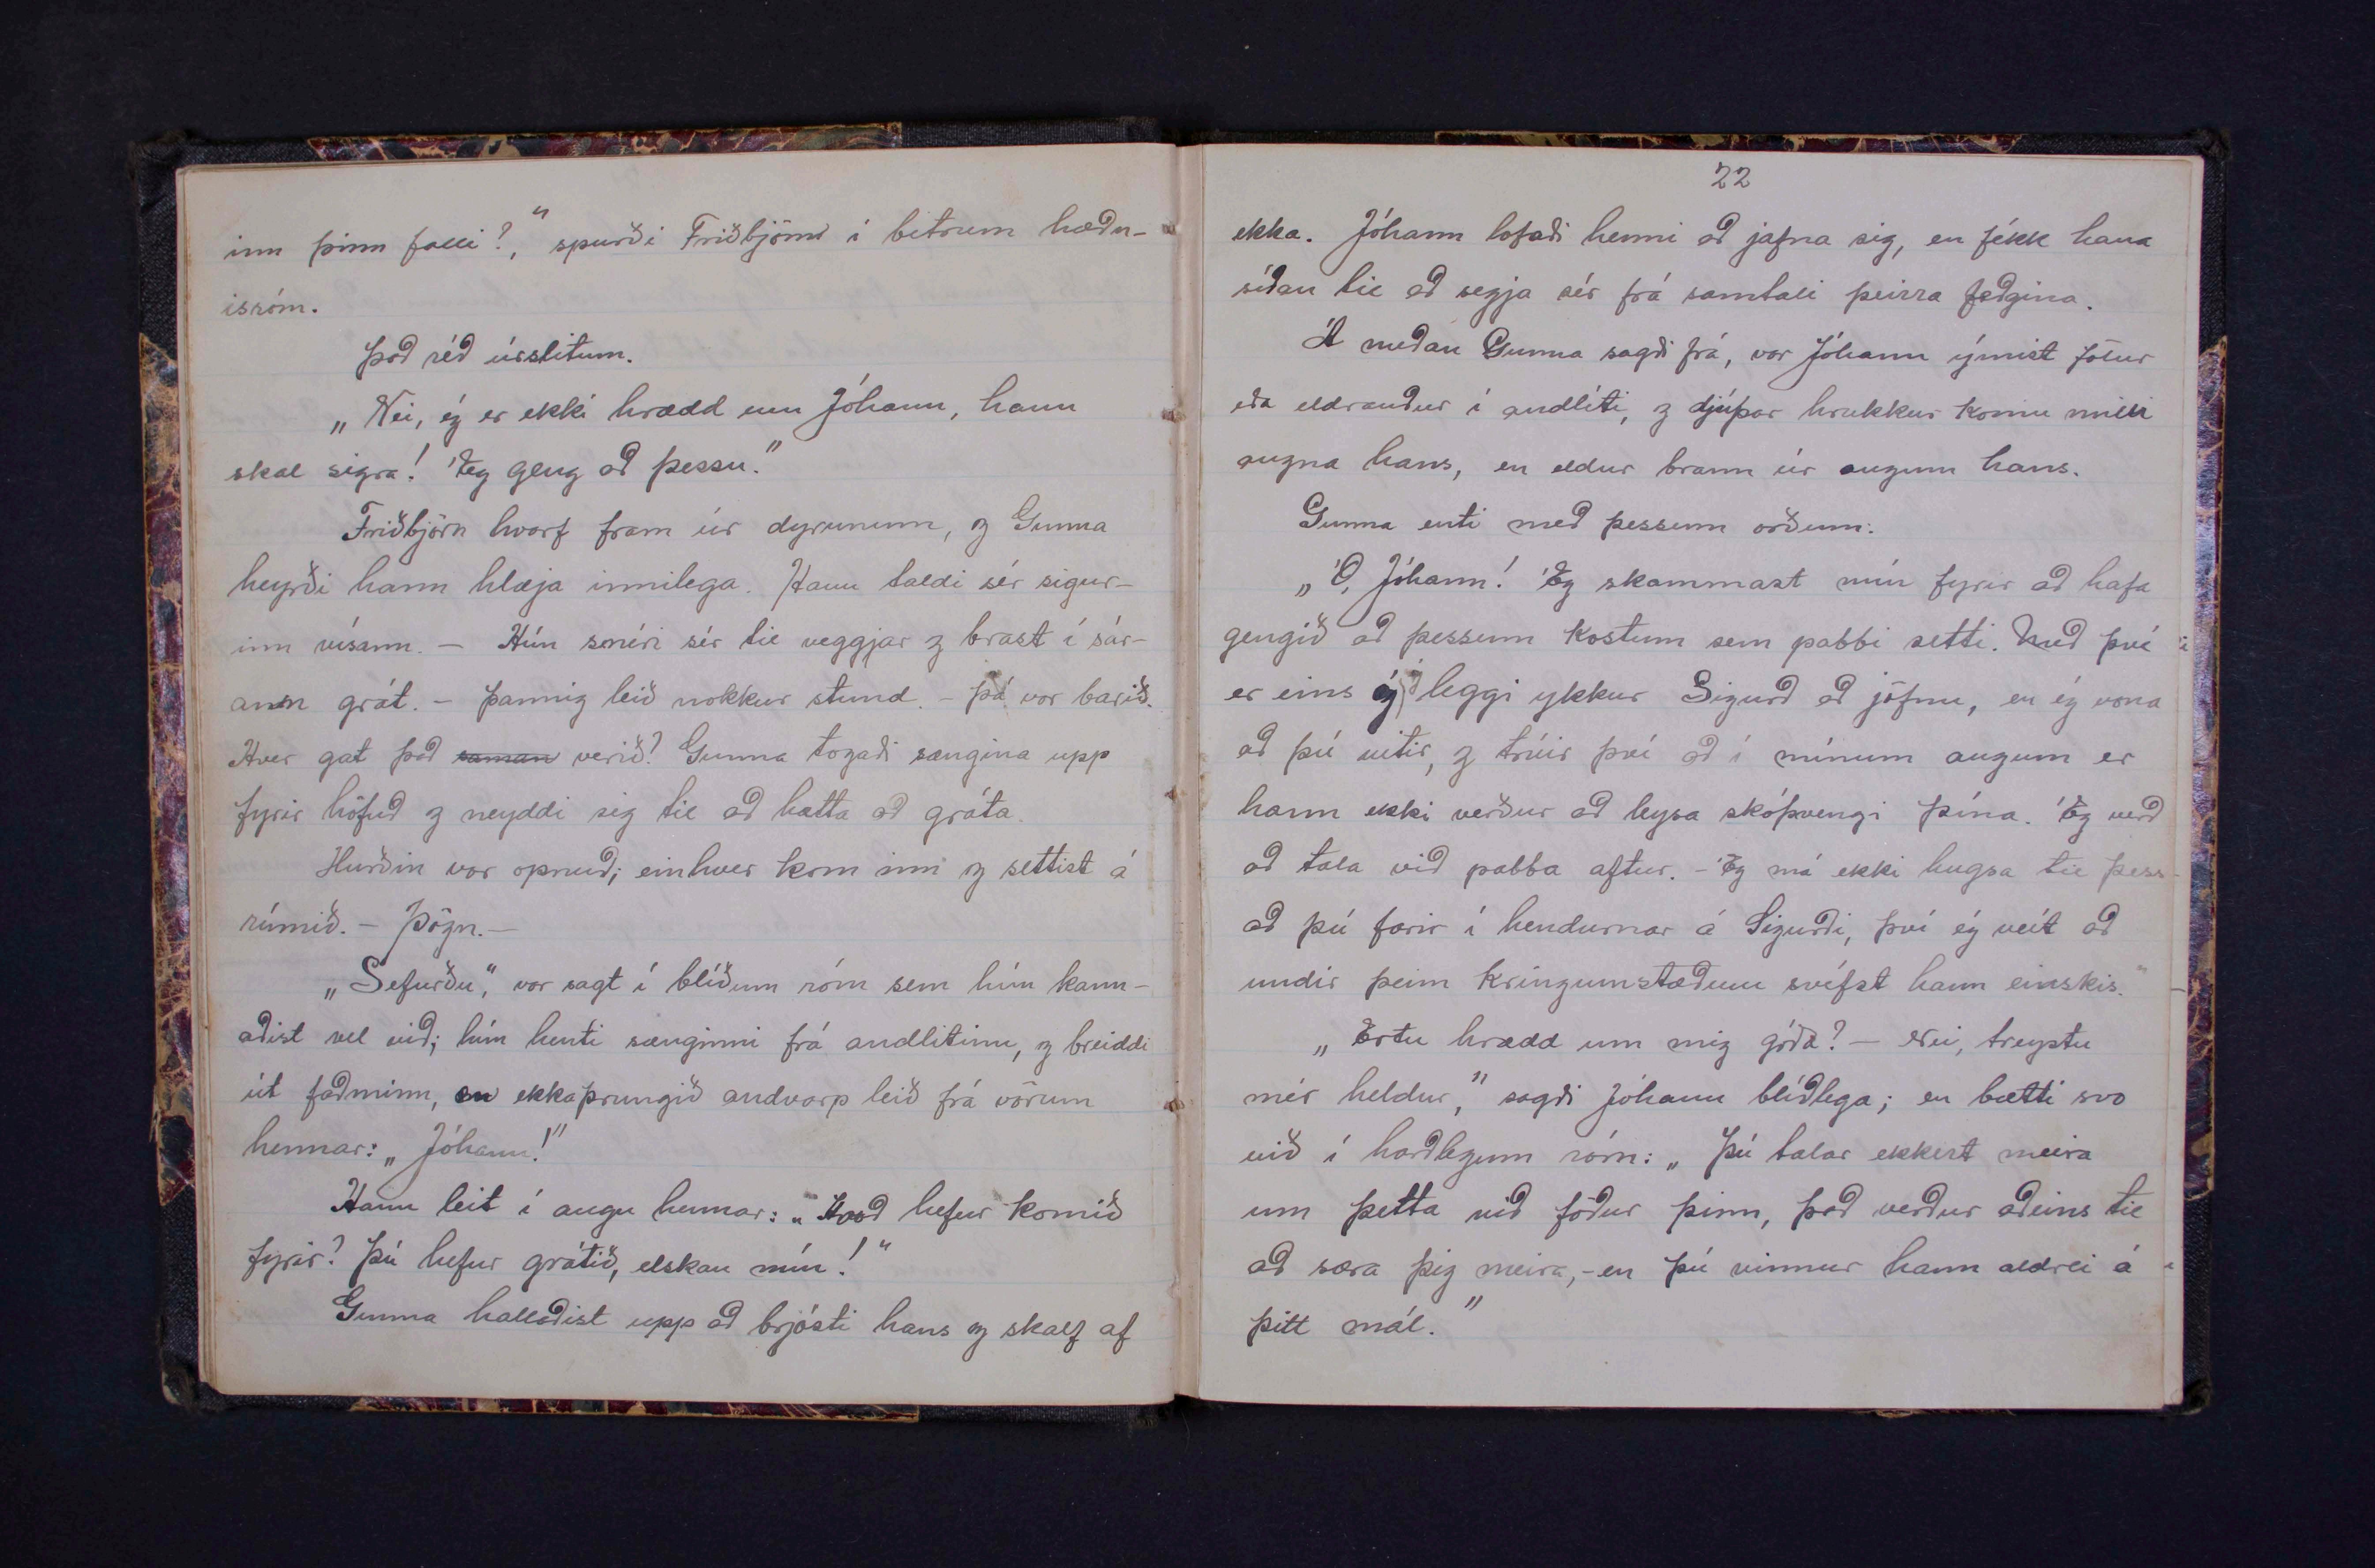 inn þinn falli?," spurði Friðbjörn í bitrum hæðn-
isróm.
Það réð úrslitum.
„Nei, ég er ekki hrædd um Jóhann, hann
skal sigra! Ég geng að þessu."
Friðbjörn hvarf fram úr dyrunum, og Gunna
heyrði hann hlæja innilega. Hann taldi sér sigur-
inn vísann. — Hún snéri sér til veggjar og brast í sár-
ann grát. - Þannig leið nokkur stund. - Þá var barið.
Hver gat það saman verið? Gunna togaði sængina upp
fyrir höfuð og neyddi sig til að hætta að gráta.
Hurðin var opnuð; einhver kom inn og settist á
rúmið. — Þögn. —
„Sefurðu", var sagt í blíðum róm sem hún kann-
aðist vel við; hún henti sænginni frá andlitinu, og breiddi
út faðminn, en ekkaþrungið andvarp leið frá vörum
hennar: „Jóhann!"
Hann leit í augu hennar: „Hvað hefur komið
fyrir? Þú hefur grátið, elskan mín!"
Gunna hallaðist upp að brjósti hans og skalf af
22
ekka. Jóhann lofaði henni að jafna sig, en fékk hana
síðan til að segja sér frá samtali þeirra feðgina.
Á meðan Gunna sagði frá, var Jóhann ýmist fölur
eða eldrauður í andliti, og djúpar hrukkur komu milli
augna hans, en eldur brann úr augum hans.
Gunna enti með þessum orðum:
„Ó, Jóhann! Ég skammast mín fyrir að hafa
gengið að þessum kostum sem pabbi setti. Með því
er eins og ég leggi ykkur Sigurð að jöfnu, en ég vona
að þú vitir, og trúir því að í mínum augum er
hann ekki verður að leysa skóþvengi þína. Ég verð
að tala við pabba aftur. - Ég má ekki hugsa til þess
að þú farir í hendurnar á Sigurði, því ég veit að
undir þeim kringumstæðum svífst hann einskis."
„Ertu hrædd um mig góða? — Nei, treystu
mér heldur," sagði Jóhann blíðlega; en bætti svo
við í harðlegum róm: „Þú talar ekkert meira
um þetta við föður þinn, það verður aðeins til
að særa þig meira, - en þú vinnur hann aldrei á
þitt mál."